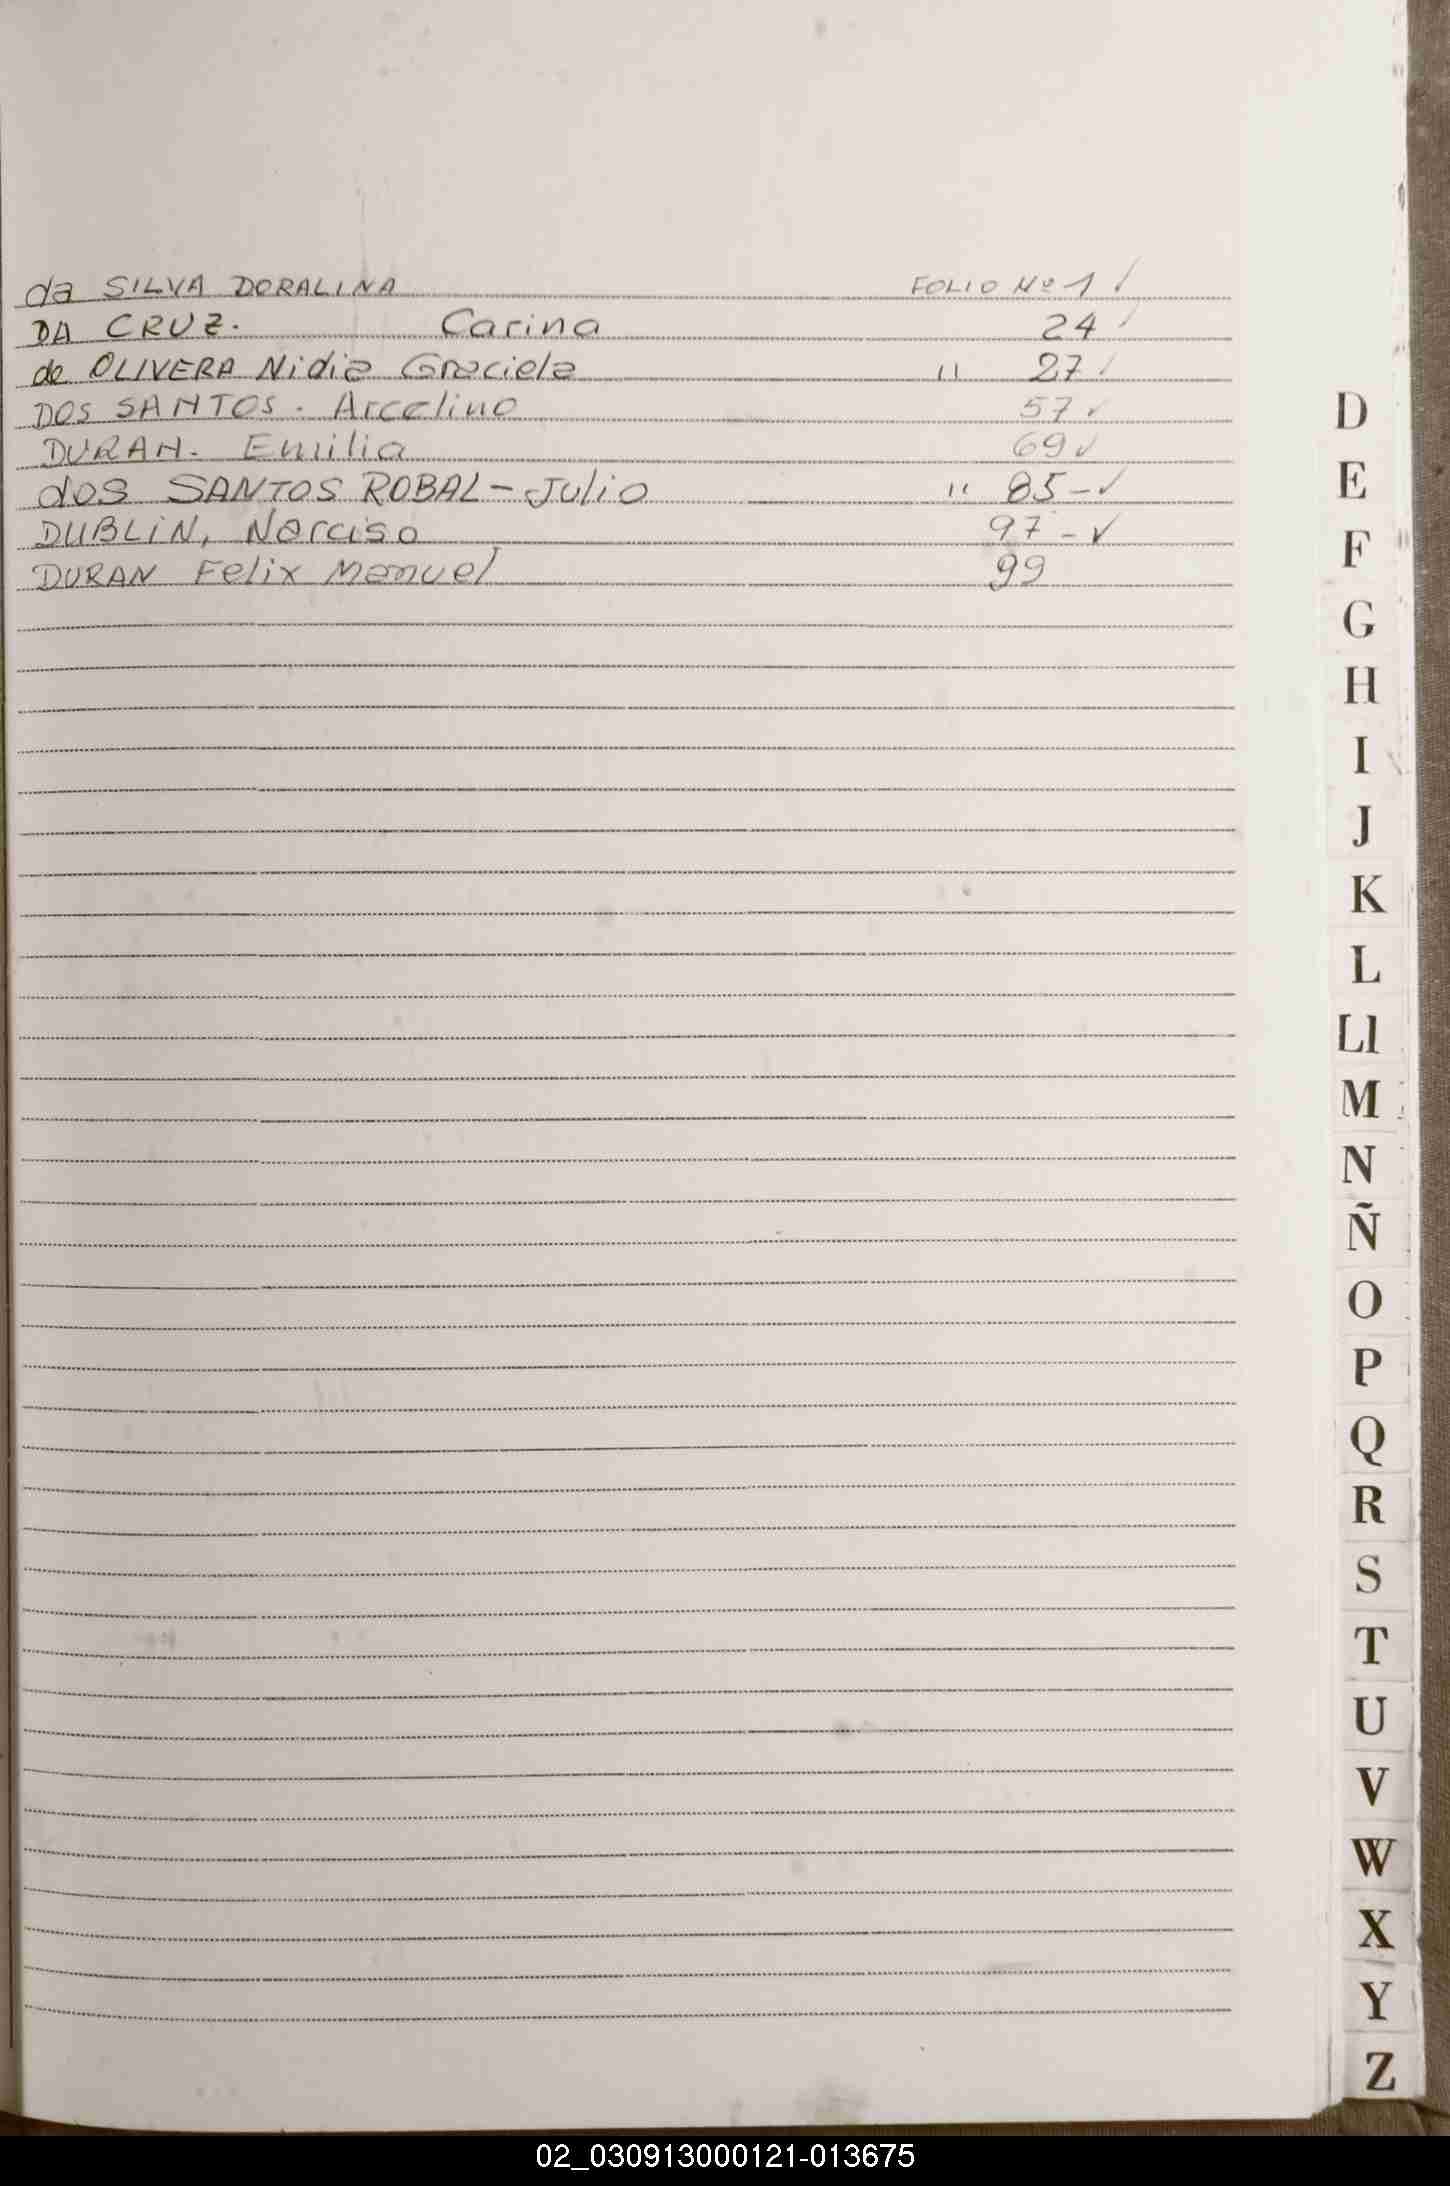 da SILVA DORALINA FOLIO Nº 1 ✓
DA CRUZ. Carina 24 ✓
de OLIVERA Nidia Graciela " 27 ✓
DOS SANTOS. Arcelino 57 ✓
DURAN. Emilia 69 ✓
dos SANTOS ROBAL - Julio " 85 - ✓
DUBLIN, Narciso 97 - ✓
DURAN Felix Manuel 99
D
E
F
G
H
I
J
K
L
Ll
M
N
Ñ
O
P
Q
R
S
T
U
V
W
X
Y
Z
02_030913000121-013675